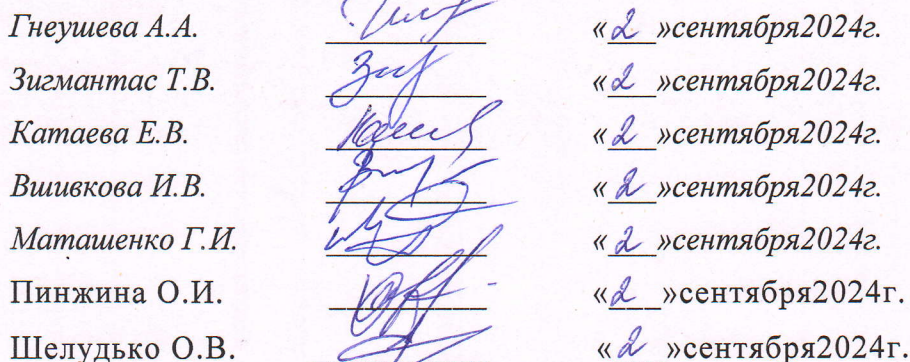 Гнеушева А.А. «2»сентября2024г.
Зигмантас Т.В. «2»сентября2024г.
Катаева Е.В. «2»сентября2024г.
Вшивкова И.В. «2»сентября2024г.
Маташенко Г.И. «2»сентября2024г.
Пинжина О.И. «2»сентября2024г.
Шелудько О.В. «2»сентября2024г.